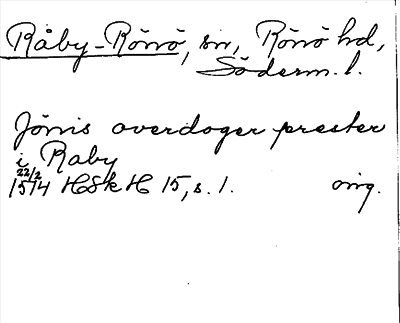 Råby-Rönö, sn, Rönö hd,
Söderm. l.
Jönis overdoger prester
i Raby
22/2 1514 HSkH 15, s. 1. orig.